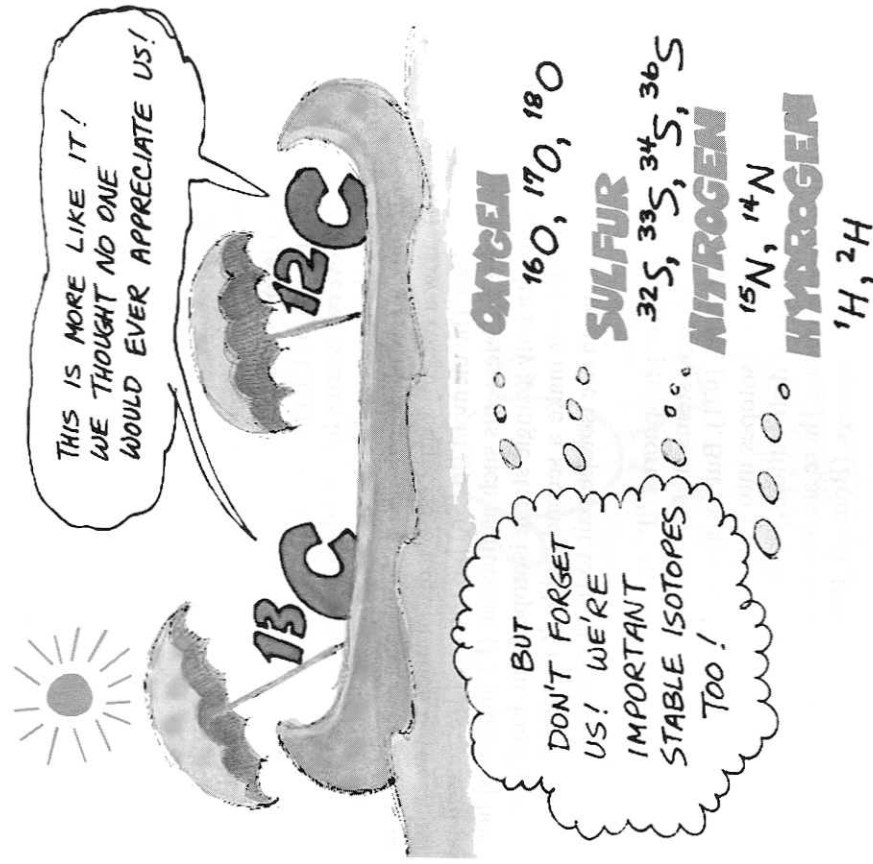 THIS IS MORE LIKE IT!
WE THOUGHT NO ONE
WOULD EVER APPRECIATE US!
13C
12C
BUT
DON'T FORGET
US! WE'RE
IMPORTANT
STABLE ISOTOPES
TOO!
OXYGEN
¹⁶O, ¹⁷O, ¹⁸O
SULFUR
³²S, ³³S, ³⁴S, ³⁶S
NITROGEN
¹⁵N, ¹⁴N
HYDROGEN
¹H, ²H